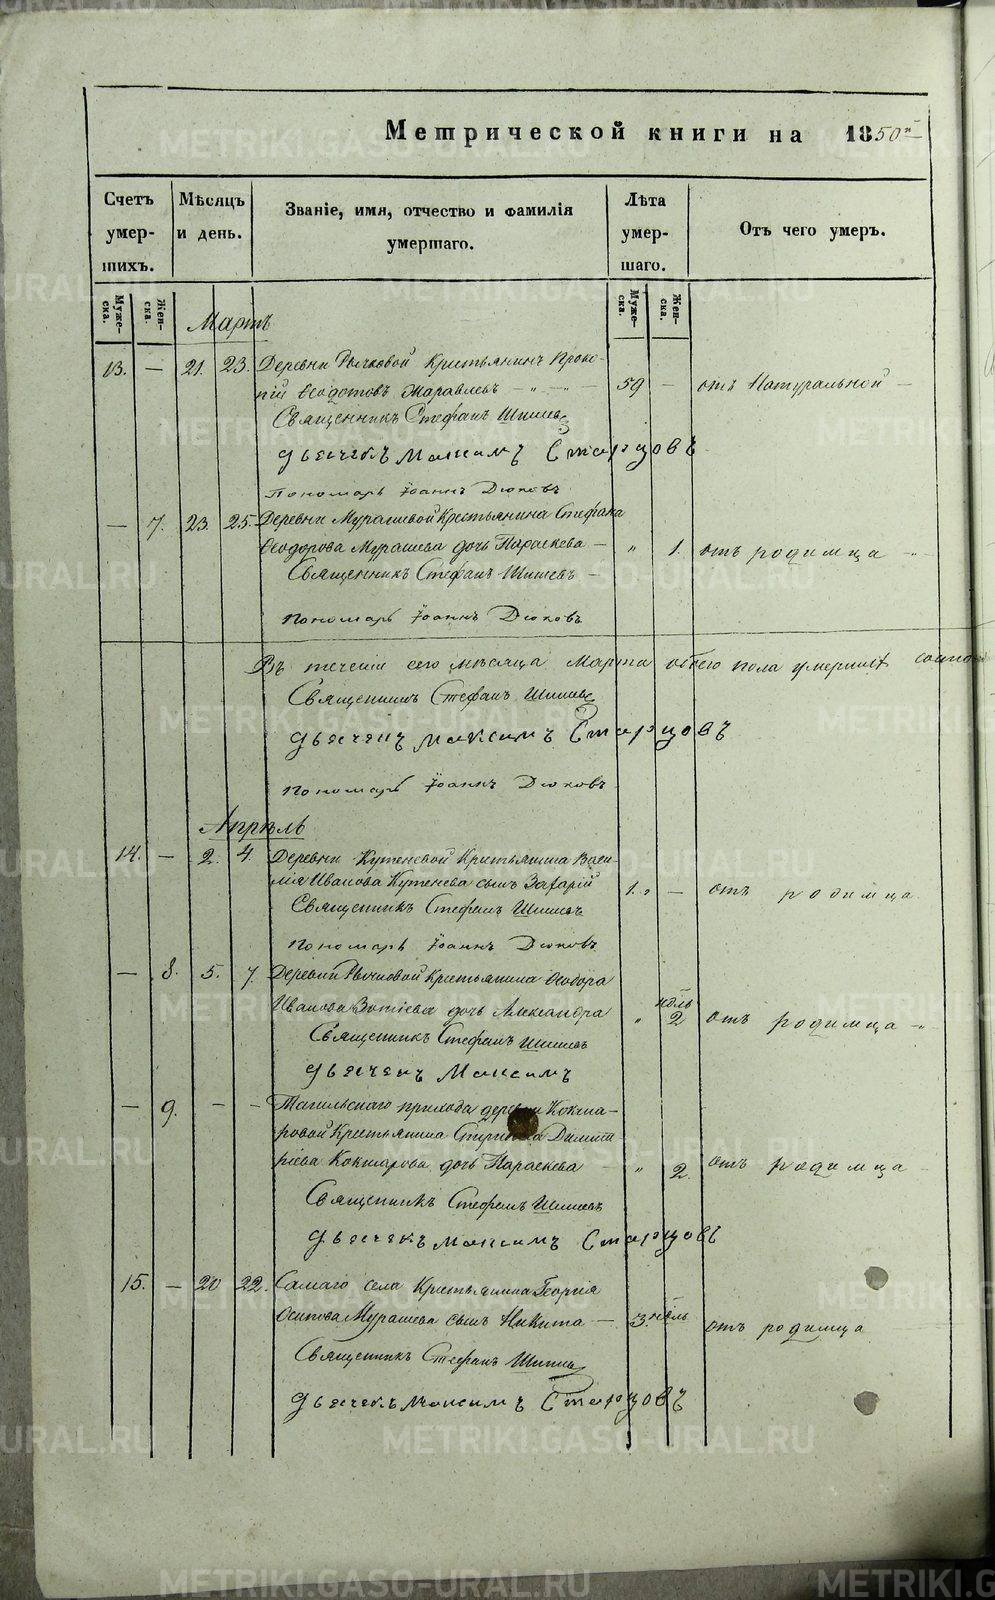 Метрической книги на 1850й
Счетъ умер-шихъ.
Мѣсяцъ и день.
Званіе, имя, отчество и фамилія умершаго.
Лѣта умер-шаго.
Отъ чего умеръ.
Муже-ска.
Жен-ска.
Муже-ска.
Жен-ска.
Мартъ
13. — 21. 23. Деревни Рычковой Крестьянинъ Проко-
пій Ѳедотовъ Жаравлевъ — „ — „ — 59 — отъ Натуральной —
Священникъ Стефанъ Шишевъ
Дьячекъ Максимъ Старцовъ
Пономарь Іоаннъ Дюковъ
— 7. 23. 25. Деревни Мурашевой Крестьянина Стефана
Ѳеодорова Мурашева дочь Параскева — „ 1. отъ родимца — „ —
Священникъ Стефанъ Шишевъ —
Пономарь Іоаннъ Дюковъ
Въ теченіи сего мѣсяца Марта обоего пола умершихъ
Священникъ Стефанъ Шишевъ
Дьячекъ Максимъ Старцовъ
Пономарь Іоаннъ Дюковъ
Апрѣль
14. — 2. 4. Деревни Кутеневой Крестьянина Васи-
лія Иванова Кутенева сынъ Захарій 1. „ — отъ родимца
Священникъ Стефанъ Шишевъ
Пономарь Іоаннъ Дюковъ
— 8. 5. 7. Деревни Рычковой Крестьянина Ѳеодора
Иванова Зотѣева дочь Александра „ 2 ндль отъ родимца — „
Священникъ Стефанъ Шишевъ
Дьячекъ Максимъ
— 9. — — Тагильскаго прихода деревни Кокша-
ровой Крестьянина Димит-
ріева Кокшарова дочь Параскева „ 2. отъ родимца —
Священникъ Стефанъ Шишевъ
Дьячекъ Максимъ Старцовъ
15. — 20 22. Самаго села Крестьянина Георгія
Осипова Мурашева сынъ Никита — 3. нѣдль отъ родимца
Священникъ Стефанъ Шишевъ
Дьячекъ Максимъ Старцовъ
METRIKI.GASO-URAL.RU